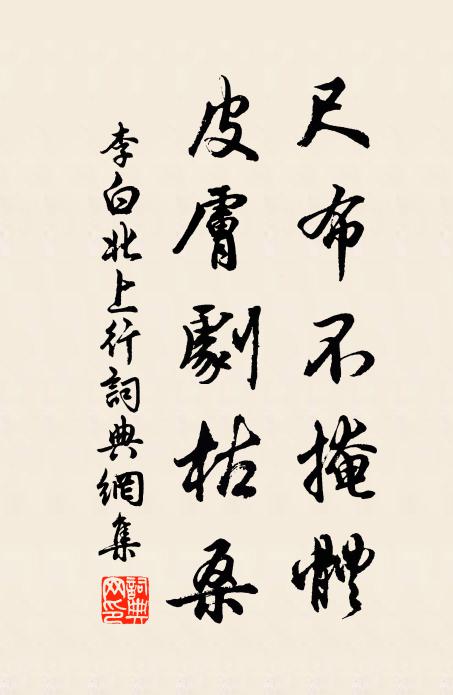 尺布不掩體
皮膚劇枯桑
李白北上行詞典網集
詞典網印